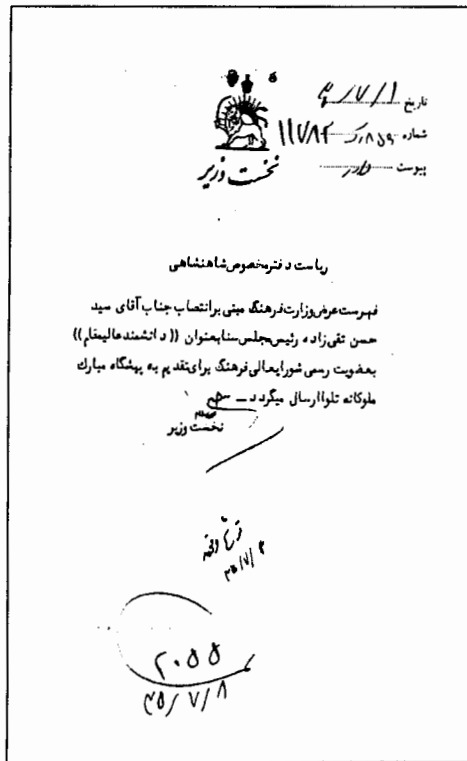 تاریخ ۳۵/۷/۱
شماره ۸۵۹ر۵ ۱۱۷۸۲
پیوست دارد
نخست وزیر
ریاست دفتر مخصوص شاهنشاهی
فهرست عرض وزارت فرهنگ مبنی بر انتصاب جناب آقای سید
حسن تقی زاده رئیس مجلس سنا بعنوان ((دانشمند عالیمقام))
بعضویت رسمی شورایعالی فرهنگ برای تقدیم به پیشگاه مبارک
ملوکانه تلوا ارسال میگردد ـ
نخست وزیر
۳۵/۷/۴
۲۰۵۵
۳۵/۷/۸